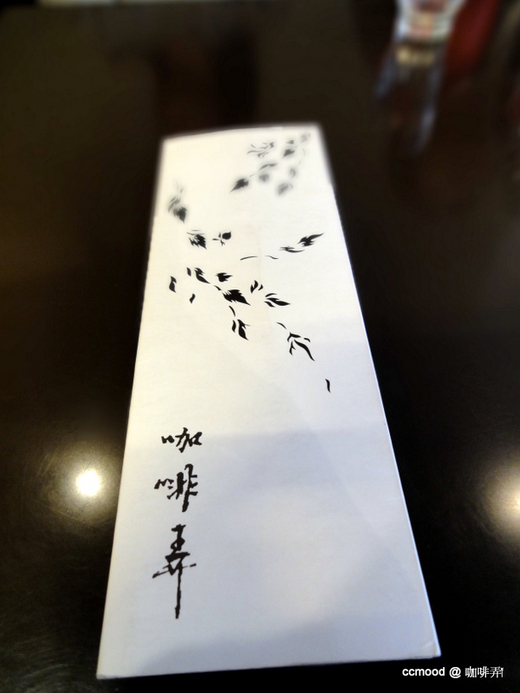 咖啡弄
ccmood @ 咖啡弄